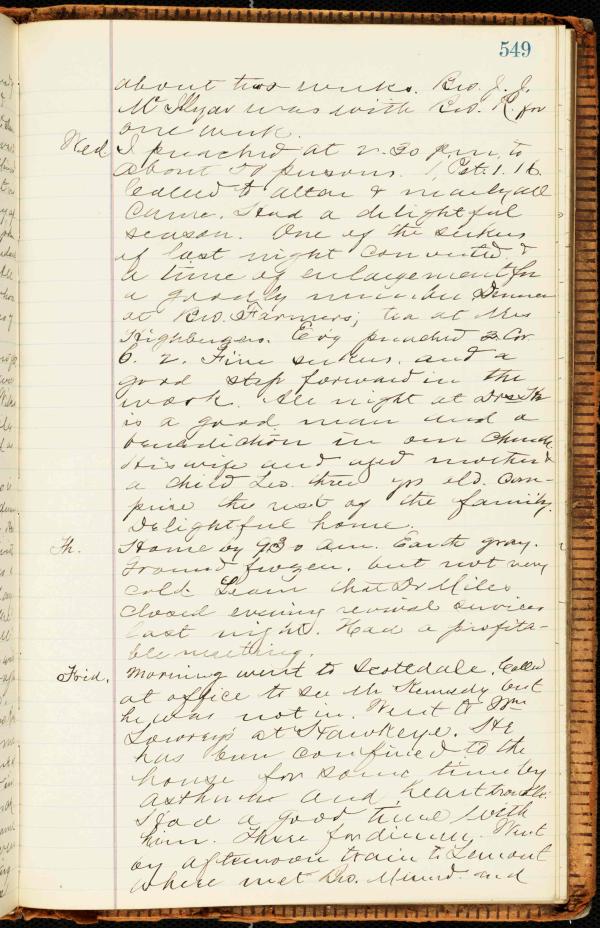 549
about two weeks. Bro. J. J.
McIlyar was with Bro. R. for
one week.
Wed I preached at 2.30 p.m. to
about 50 persons. 1 Pet. 1. 16.
Called to altar & nearly all
came. Had a delightful
season. One of the seekers
of last night converted &
a time of enlargement for
a goodly number Dinner
at Bro. Farmers; tea at Mrs
Highbergers. Ev'g preached 2 Cor
6. 2. Five seekers. and a
good step forward in the
work. All night at Drs. He
is a good man and a
benediction in our church.
His wife and aged mother &
a child Leo. three yrs old. com-
prise the rest of the family.
Delightful home.
Th. Home by 9.30 a.m. Earth gray.
Ground frozen. but not very
cold. Learn that Dr Miles
closed evening revival services
last night. Had a profita-
ble meeting.
Frid. Morning went to Scottdale. Called
at office to see Mr Kennedy but
he was not in. Went to Wm
Lowreys at Hawkeye. He
has been confined to the
house for some time by
asthma and heart trouble.
Had a good time with
him. There for dinner. Went
on afternoon train to Lemont
where met Bro. and